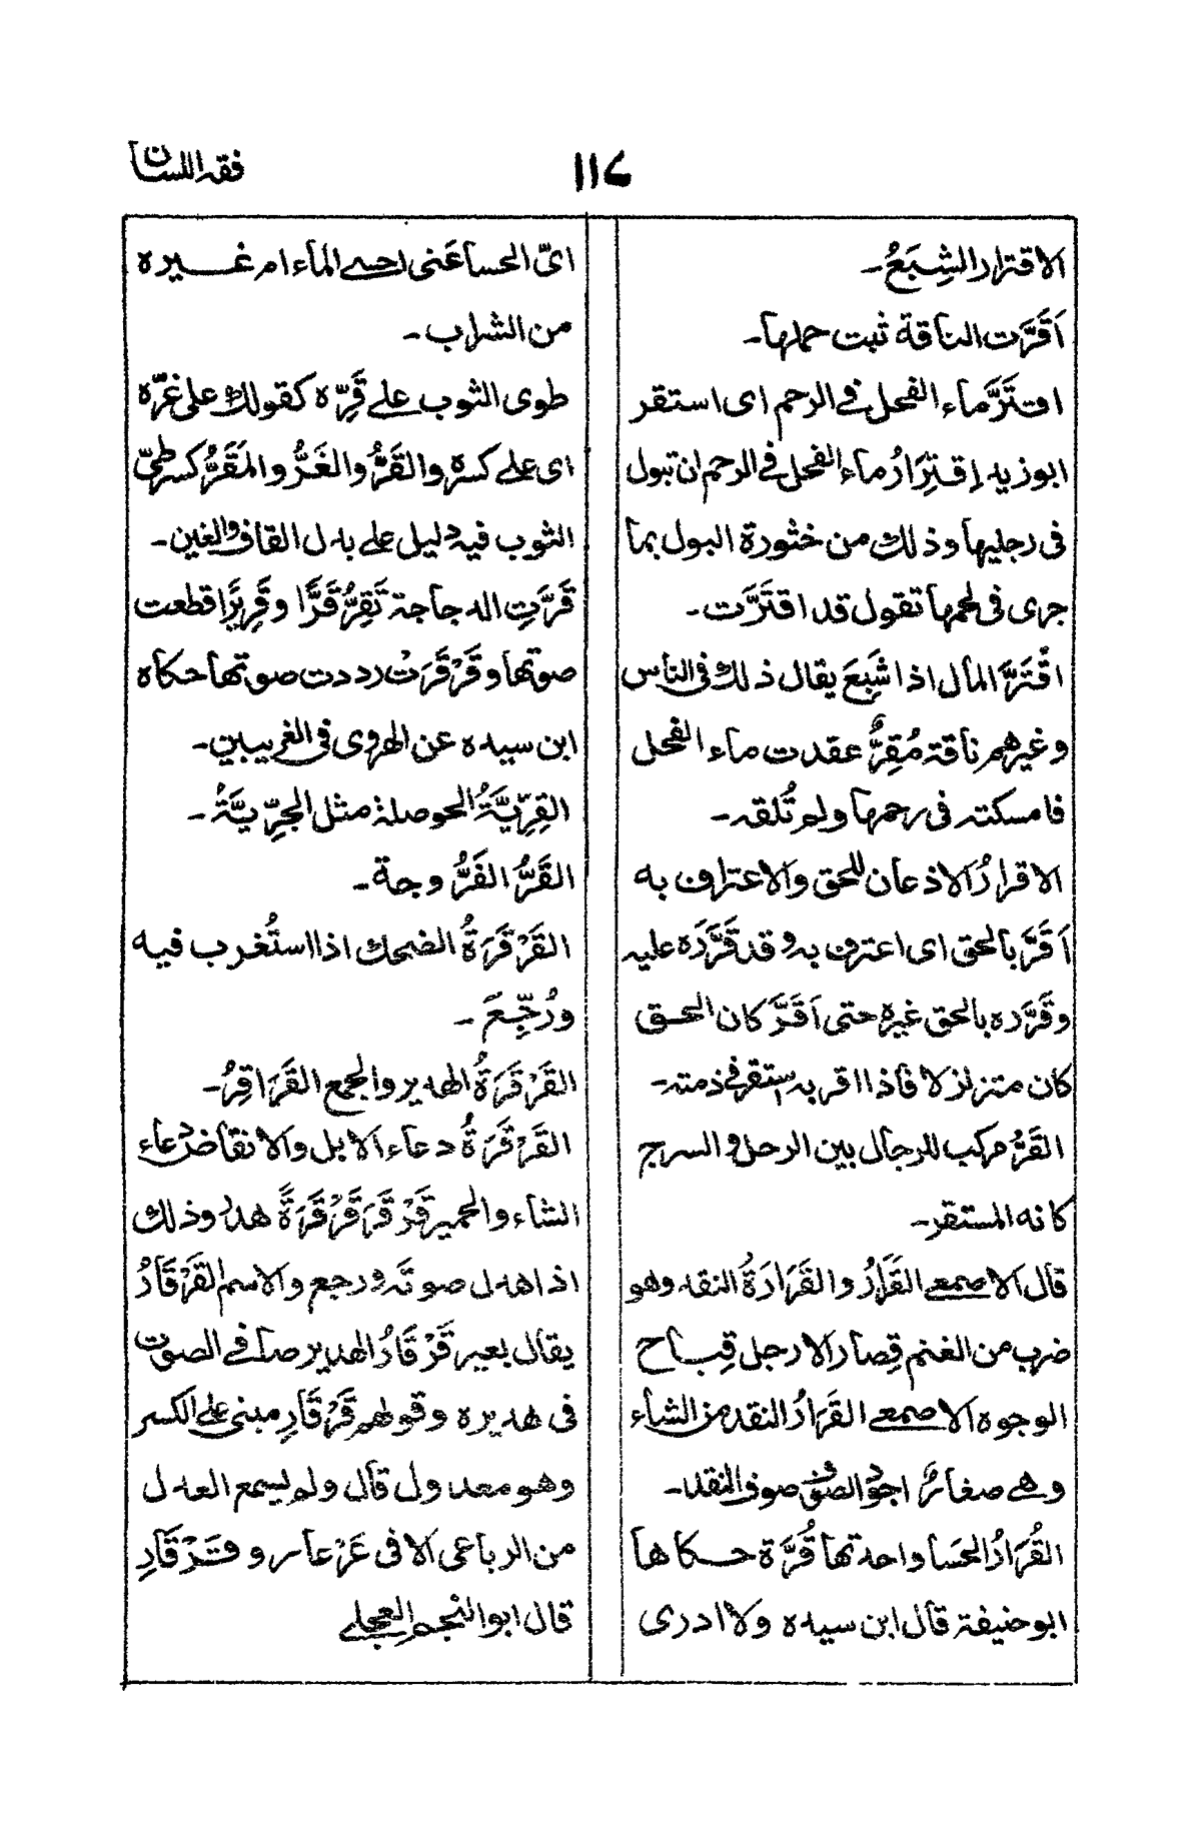 فقه اللسان
۱۱۷
الاقترار الشِبَعُ۔
اَقَرَّت الناقة ثبت حملها۔
اقتَرَّ ماء الفحل في الرحم اى استقر
ابوزيد اِقتِرَارُ ماء الفحل في الرحم ان تبول
فى رجليها وذلك من خثورة البول بما
جرى فى لحمها تقول قد اقتَرَّت۔
اقْتَرَّ المال اذا شَبِعَ يقال ذلك فى الناس
وغيرهم ناقة مُقِرٌّ عقدت ماء الفحل
فامسكته فى رحمها ولم تُلقه۔
الاقرارُ الاذعان للحق والاعتراف به
اَقَرَّ بالحق اى اعترف به وقد قَرَّرَه عليه
وقَرَّره بالحق غيره حتى اَقَرَّ كان الحق
كان متزلزلا فاذا اقر به استقر فى ذمته۔
القَرُّ مركب للرجال بين الرحل والسرج
كانه المستقر۔
قال الاصمعى القَرَارُ والقَرَارَةُ النقد وهو
ضرب من الغنم قِصار الارجل قِباح
الوجوه الاصمعى القَرَارُ النقد من الشاء
وهى صغارٌ اجود الصوف صوف النقد۔
القُرَارُ الحَسا واحدتها قُرَّة حكاها
ابوحنيفة قال ابن سيده ولا ادرى
اىّ الحسا عَنى احسى الماء ام غيره
من الشراب۔
طوى الثوب على قَرِّه كقولك على غَرِّه
اى على كسره والقَرُّ والغَرُّ والمَقَرُّ كسر طىّ
الثوب فيه دليل على بدل القاف والغين۔
قَرَّتِ الدجاجة تَقِرُّ قَرًّا وقَرِيرًا قطعت
صوتها وقَرْقَرَتْ رددت صوتها حكاه
ابن سيده عن الهروى فى الغريبين۔
القِرِّيَّةُ الحوصلة مثل الجِرِّيَّةُ۔
القَرُّ الفَرُّوجة۔
القَرْقَرَةُ الضحك اذا استُغرب فيه
ورُجِّعَ۔
القَرْقَرَةُ الهدير والجمع القَرَاقِرُ۔
القَرْقَرَةُ دعاء الابل والانقاض دعاء
الشاء والحمير قَرْقَرَ قَرْقَرَةً هدر وذلك
اذا هدل صوته ورجع والاسم القَرْقَارُ
يقال بعير قَرْقَارُ الهدير صاف الصوت
فى هديره وقولهم قَرْقَارِ مبنى على الكسر
وهو معدول قال ولم يسمع العدل
من الرباعى الا فى عَرْعارِ وقَرْقَارِ
قال ابوالنجم العجلى